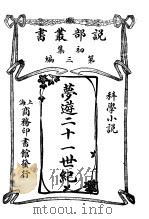 説部叢書
初集
第三編
科學小説
夢遊二十一世紀
上海商務印書館發行
mtoou.info